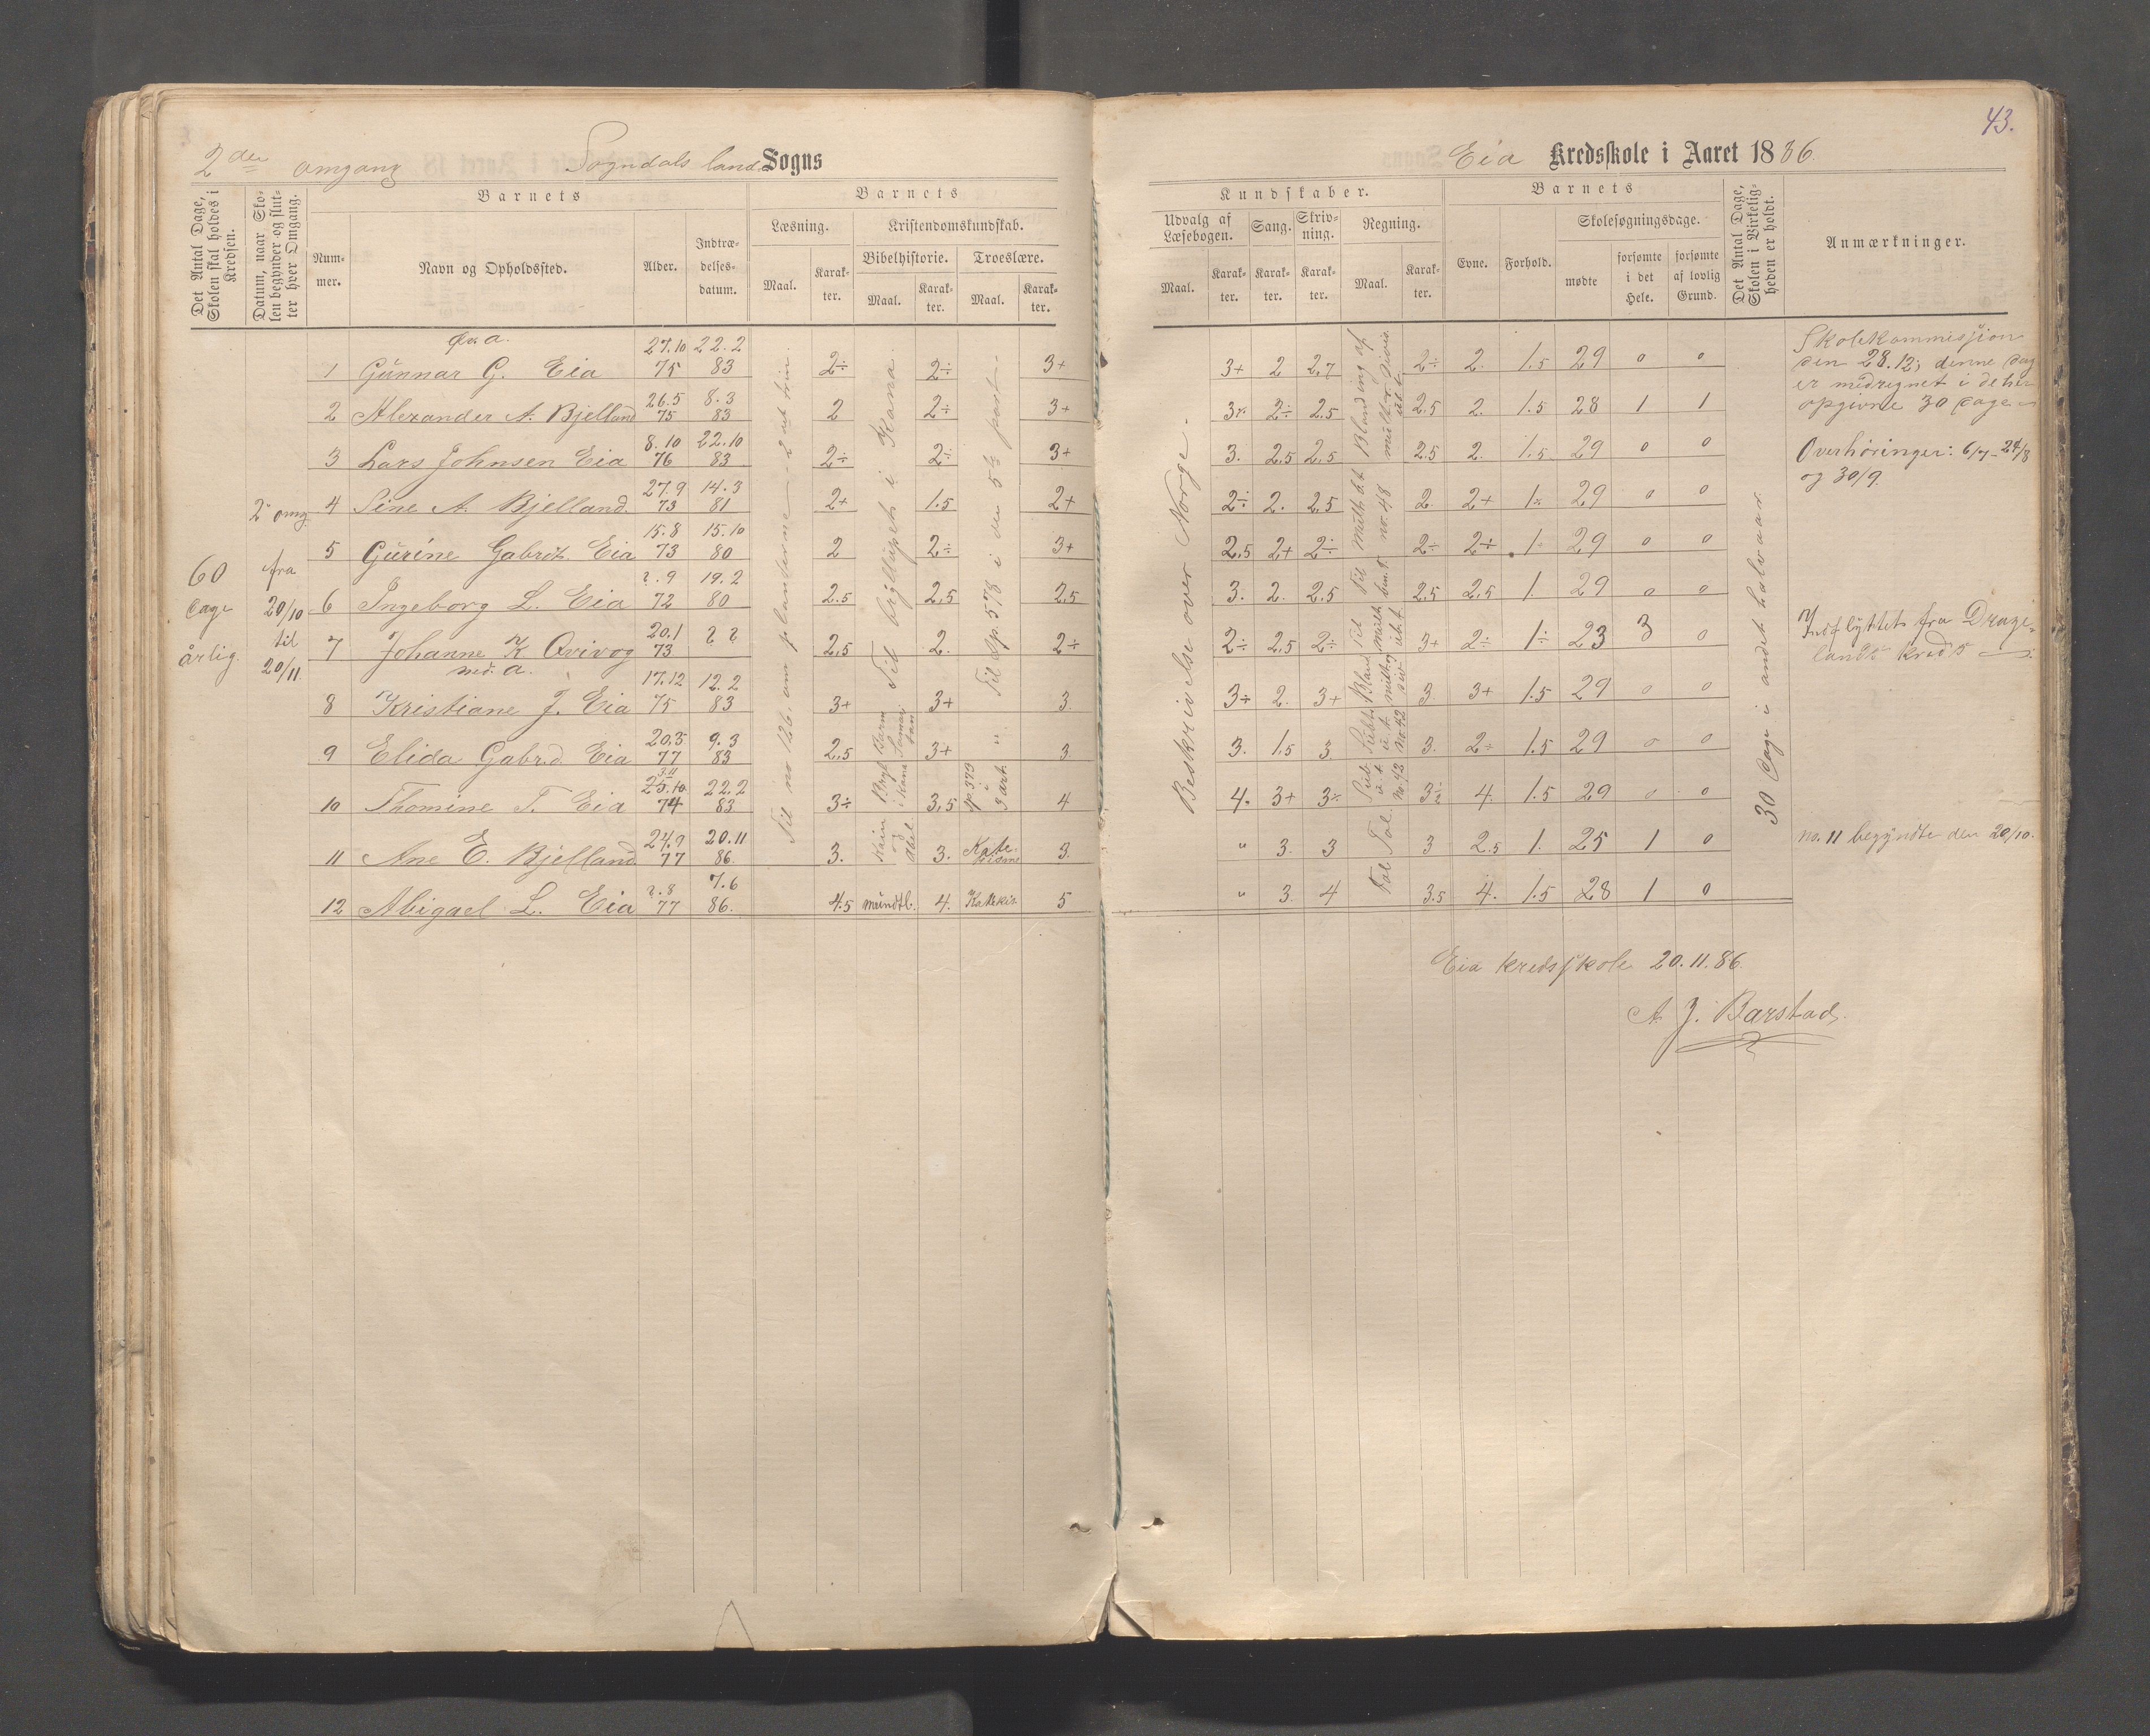 43.
2den omgang Sogndals land Sogns
Eia Kredsskole i Aaret 1886.
Det Antal Dage, Skolen skal holdes i Kredsen.
Datum, naar Skolen begynder og slutter hver Omgang.
Barnets
Nummer.
Navn og Opholdssted.
Alder.
Indtrædelsesdatum.
Barnets
Læsning.
Maal.
Karakter.
Kristendomskundskab.
Bibelhistorie.
Maal.
Karakter.
Troeslære.
Maal.
Karakter.
Kundskaber.
Udvalg af Læsebogen.
Maal.
Karakter.
Sang.
Karakter.
Skrivning.
Karakter.
Regning.
Maal.
Karakter.
Barnets
Evne.
Forhold.
Skolesøgningsdage.
mødte
forsømte i det Hele.
forsømte af lovlig Grund.
Det Antal Dage, Skolen i Virkeligheden er holdt.
Anmærkninger.
60 dage årlig.
2 omg fra 20/10 til 20/11
1 Gunnar G. Eia 27.10 75 22.2 83 2÷ 2÷ 3+ 3+ 2 2,7 2÷ 2. 1.5 29 0 0
2 Alexander A. Bjelland 26.5 75 8.3 83 2 2÷ 3+ 3÷ 2÷ 2.5 2.5 2. 1.5 28 1 1
3 Lars Johnsen Eia 8.10 76 22.10 83 2÷ 2÷ 3+ 3. 2.5 2,5 2.5 2. 1.5 29 0 0
4 Sine A. Bjelland. 27.9 73 14.3 81 2+ 1.5 2+ 2÷ 2. 2.5 2. 2+ 1÷ 29 0 0
5 Gurine Gabrd. Eia 15.8 73 15.10 80 2 2÷ 3+ 2,5 2+ 2÷ 2÷ 2÷ 1÷ 29 0 0
6 Ingeborg L. Eia ?.9 72 19.2 80 2.5 2,5 2,5 3. 2. 2.5 2.5 2,5 1. 29 0 0
7 Johanne K. Qvivog 20.1 73 ? ? 2,5 2. 2÷ 2÷ 2,5 2÷ 3+ 2÷ 1÷ 23 3 0
ned. a.
8 Kristiane J. Eia 17.12 75 12.2 83 3+ 3+ 3. 3÷ 2. 3+ 3. 3+ 1.5 29 0 0
9 Elida Gabrd. Eia 20.3 77 9.3 83 2,5 3+ " 3. 3. 1.5 3 3. 2÷ 1.5 29 0 0
10 Thomine T. Eia 74 22.2 83 3÷ 3,5 4 4. 3+ 3÷ 4. 1.5 29 0 0
11 Ane E. Bjelland 24.9 77 20.11 86. 3. Kain og Abel. 3. Katekisme 3. " 3. 3 Tal. 3 2.5 1. 25 1 0
12 Abigael L. Eia ?.8 77 7.6 86. 4.5 mundtl. 4. Katekis. 5 " 3. 4 Tal 3.5 4. 1.5 28 1 0
Beskrivelse over Norge.
30 dage i andet halvaar.
Skolekommission den 28.12; denne dag er medregnet i de her opgivne 30 dage.
Overhøringer: 6/7 - 24/8 og 30/9.
7/ Indflyttet fra Dragelands kreds
no. 11 begyndte den 20/10.
Eia kredsskole 20.11.86.
A. J. Barstad.